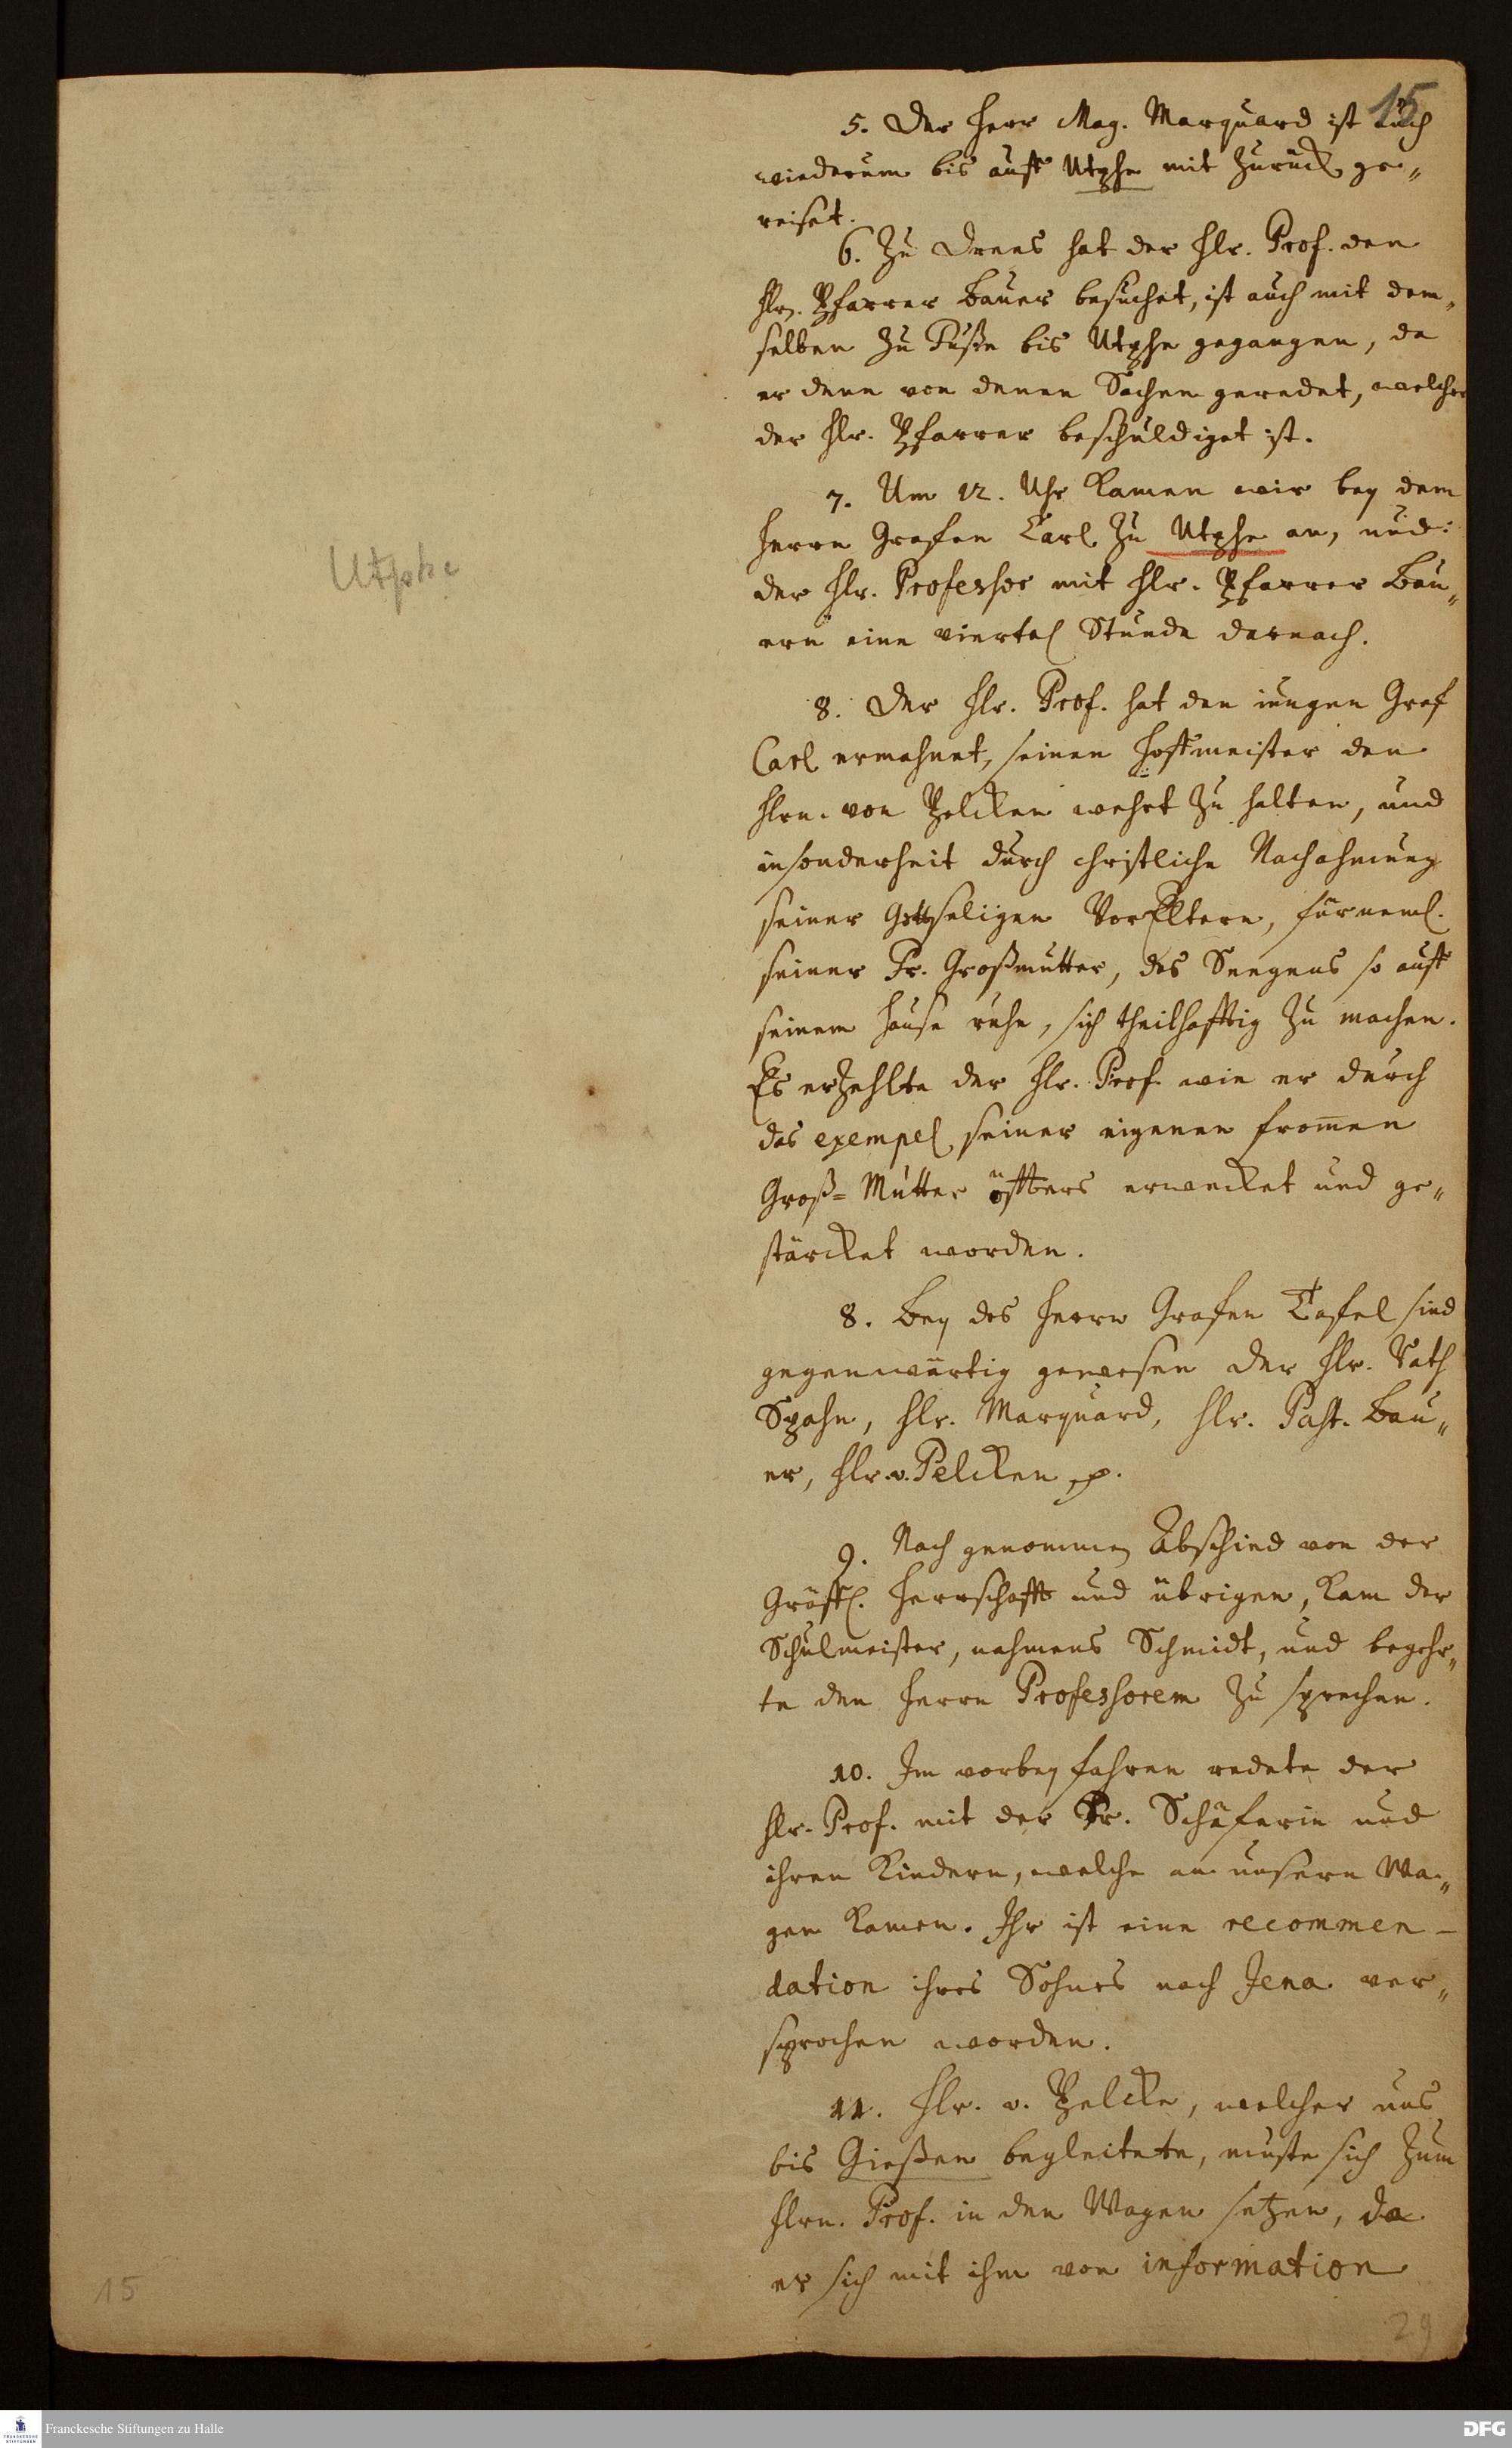 15
5. Der Herr Mag. Marquard ist auch
wiederum bis auff Utphe mit zurück ge„
reiset.
6. Zu Drees hat der Hr. Prof. den
Hrn. Pfarrer Bauer besuchet, ist auch mit dem„
selben zu Fuße bis Utphe gegangen, da
er denn von denen Sachen geredet, welcher
der Hr. Pfarrer beschuldiget ist.
7. Um 12. Uhr kamen wir bey dem
Herrn Grafen Carl zu Utphe an, und
der Hr. Professor mit Hr. Pfarrer Bau„
ern eine viertel Stunde darnach.
Utphe
8. Der Hr. Prof. hat den jungen Graf
Carl ermahnet, seinen Hoffmeister den
Hrn. von Pelcken wehrt zu halten, und
insonderheit durch christliche Nachahmung
seiner Gottseligen VorEltern, fürneml.
seiner Fr. Großmutter, des Seegens so auff
seinem Hause ruhe, sich theilhafftig zu machen.
Es erzehlte der Hr. Prof. wie er durch
das exempel seiner eigenen from̅en
Groß-Mutter öffters erwecket und ge„
stärcket worden.
8. Bey des Herrn Grafen Tafel sind
gegenwärtig gewesen der Hr. Rath
Spahn, Hr. Marquard, Hr. Past. Bau„
er, Hr. v. Pelcken p.
9. Nach genommen Abschied von der
Gräffl. Herrschafft und übrigen, kam der
Schulmeister, nahmens Schmidt, und begehr„
te den Herrn Professorem zu sprechen.
10. Im vorbey fahren redete der
Hr. Prof. mit der Fr. Schäferin und
ihren Kindern, welche an unsern Wa„
gen kamen. Ihr ist eine recommen-
dation ihres Sohnes nach Jena ver„
sprochen worden.
11. Hr. v. Pelcke, welcher uns
bis Gießen begleitete, muste sich zum
Hrn. Prof. in den Wagen setzen, da
er sich mit ihm von information
15
29
Franckesche Stiftungen zu Halle
DFG